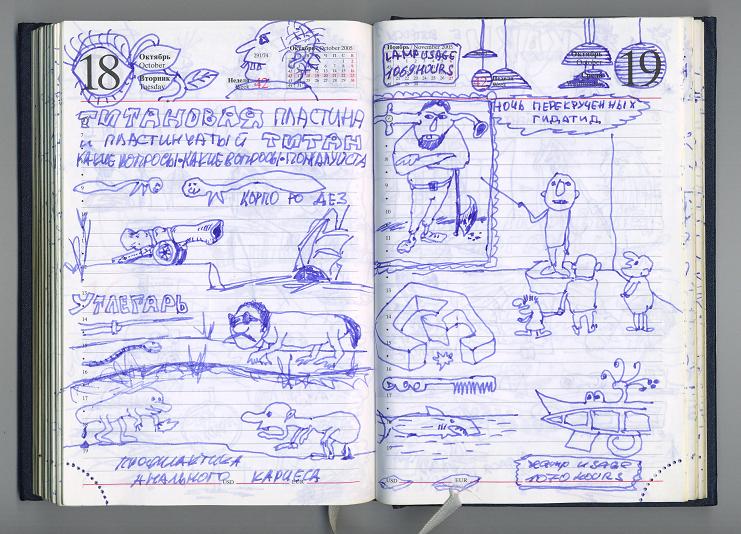 18
Октябрь
October
Вторник
Tuesday
291/74
Октябрь October 2005
Неделя
Week
42
ТИТАНОВАЯ ПЛАСТИНА
и ПЛАСТИНЧАТЫЙ ТИТАН
КАКИЕ ВОПРОСЫ-КАКИЕ ВОПРОСЫ-ПОЖАЛУЙСТА
КОРПО РО ДЕЗ
УТЛЕГАРЬ
ПРОФИЛАКТИКА
АНАЛЬНОГО КАРИЕСА
USD
EUR
Ноябрь November 2005
LAMP USAGE
1069 HOURS
Октябрь
October
Week
19
НОЧЬ ПЕРЕКРУЧЕННЫХ
ГИДАТИД
LAMP USAGE
1070 HOURS
USD
EUR